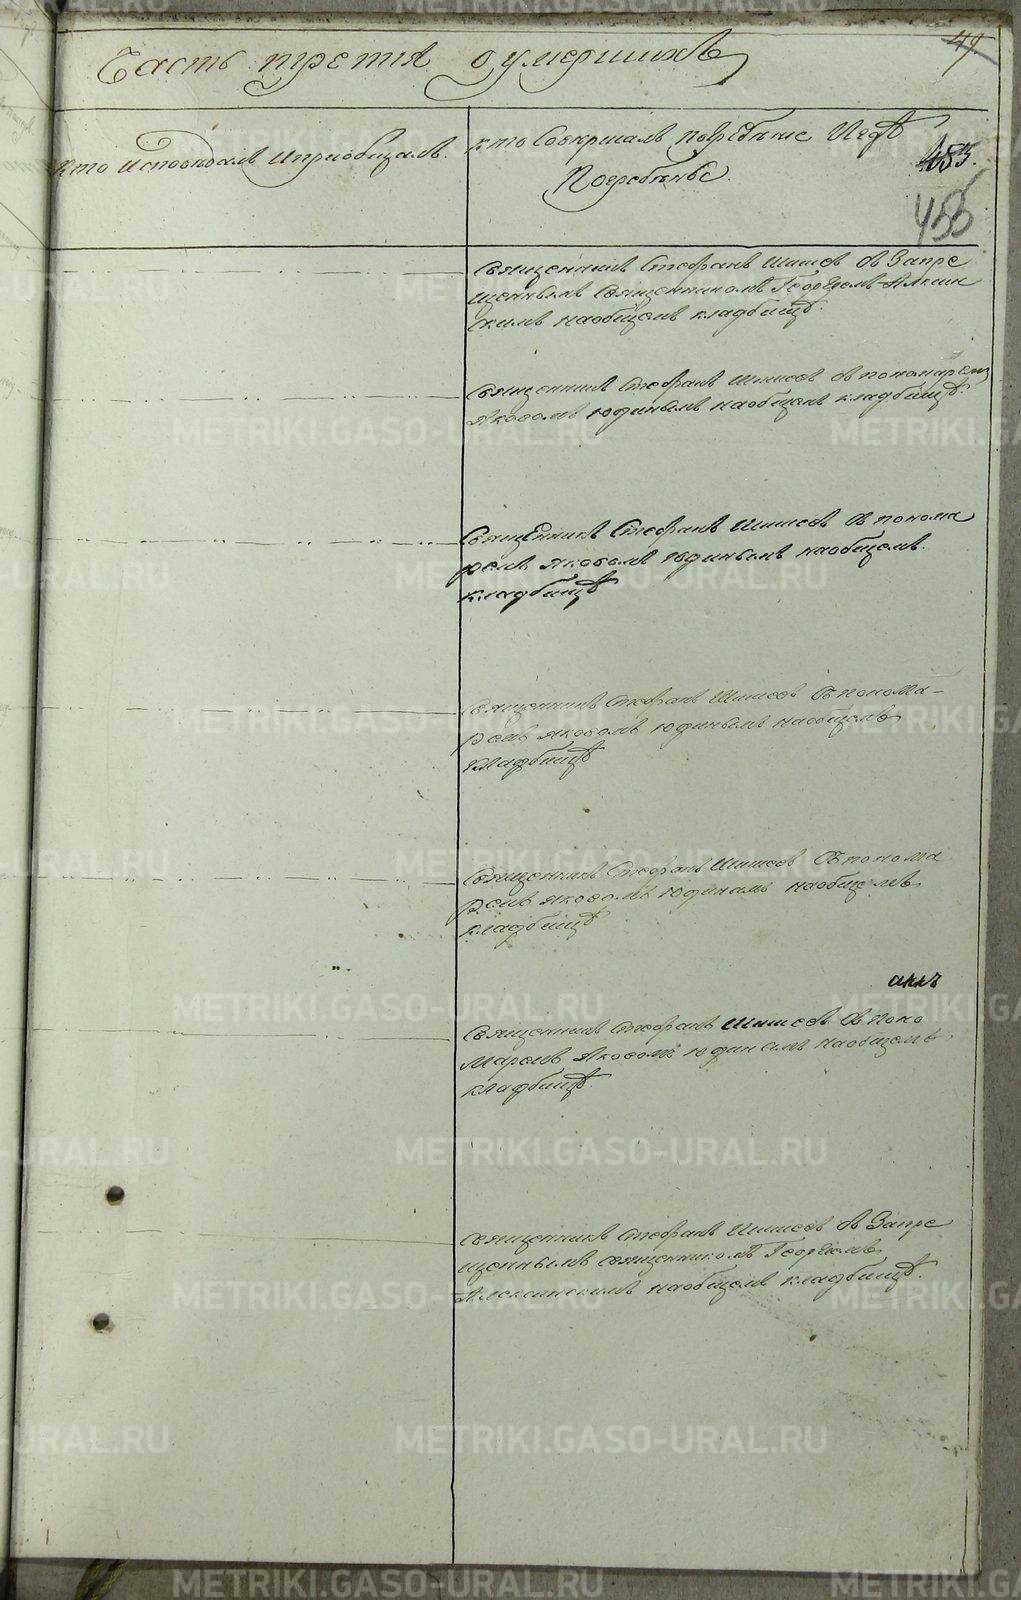 47
Часть третя о умершихъ
Кто исповѣдалъ и приобщалъ.
Кто Совершалъ погребѣние И гдѣ
Погребѣны.
483.
455
Священникъ Стефанъ Шишевъ съ Запре
щеннымъ Священникомъ Георгіемъ Алексин
скимъ наобщемъ кладбищѣ.
Священникъ Стефанъ Шишевъ съ пономарем
Яковомъ Юдинымъ наобщемъ кладбищѣ.
Священникъ Стефанъ Шишевъ съ понома
ремъ Яковомъ Юдинымъ наобщемъ
кладбищѣ
Священникъ Стефанъ Шишевъ съ понома-
ремъ Яковомъ Юдинымъ наобщемъ
кладбищѣ
Священникъ Стефанъ Шишевъ съ понома
ремъ Яковомъ Юдинамъ наобщемъ
кладбищѣ
Священникъ Стефанъ Шишевъ съ поно
маремъ Яковомъ Юдинамъ наобщемъ
кладбищѣ.
Священникъ Стефанъ Шишевъ съ Запре
щеннымъ священникомъ Георгіемъ
Алексинскимъ наобщемъ кладбищѣ.
METRIKI.GASO-URAL.RU